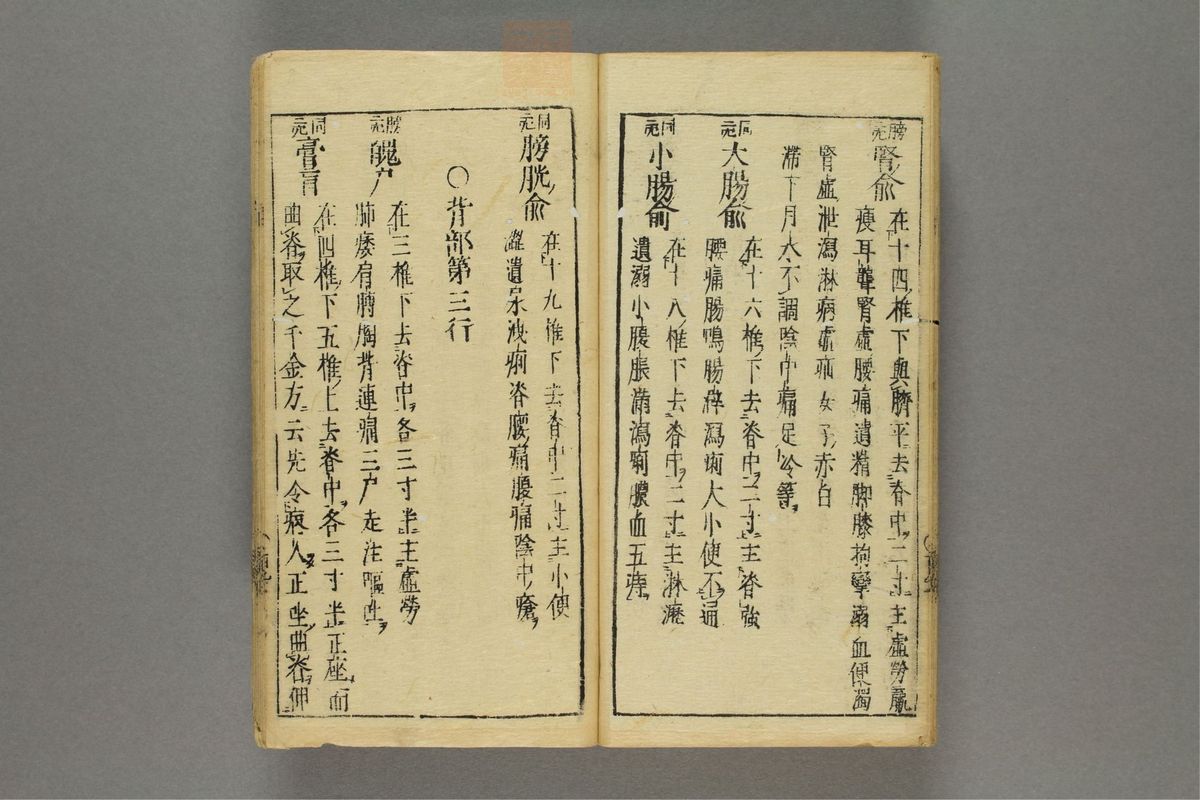 膀元
腎俞
在十四椎下與臍平去脊中二寸主虛勞羸
瘦耳聾腎虛腰痛遺精脚膝拘攣溺血便濁
腎虛泄瀉淋病虛痛女子赤白
滯下月水不調陰中痛足冷等
同元
大腸俞
在十六椎下去脊中二寸主脊強
腰痛腸鳴腸澼瀉痢大小便不通
同元
小腸俞
在十八椎下去脊中二寸主淋瀝
遺溺小腹脹滿瀉痢膿血五痔
同元
膀胱俞
在十九椎下去脊中二寸主小便
澀遺尿洩痢脊腰痛腹痛陰中瘡
〇背部第三行
膀元
魄户
在三椎下去脊中各三寸半主虛勞
肺痿肩膊胸背連痛三户走注嘔吐
同元
膏肓
在四椎下五椎上去脊中各三寸半正座而
曲脊取之千金方云先令病人正坐曲脊伸